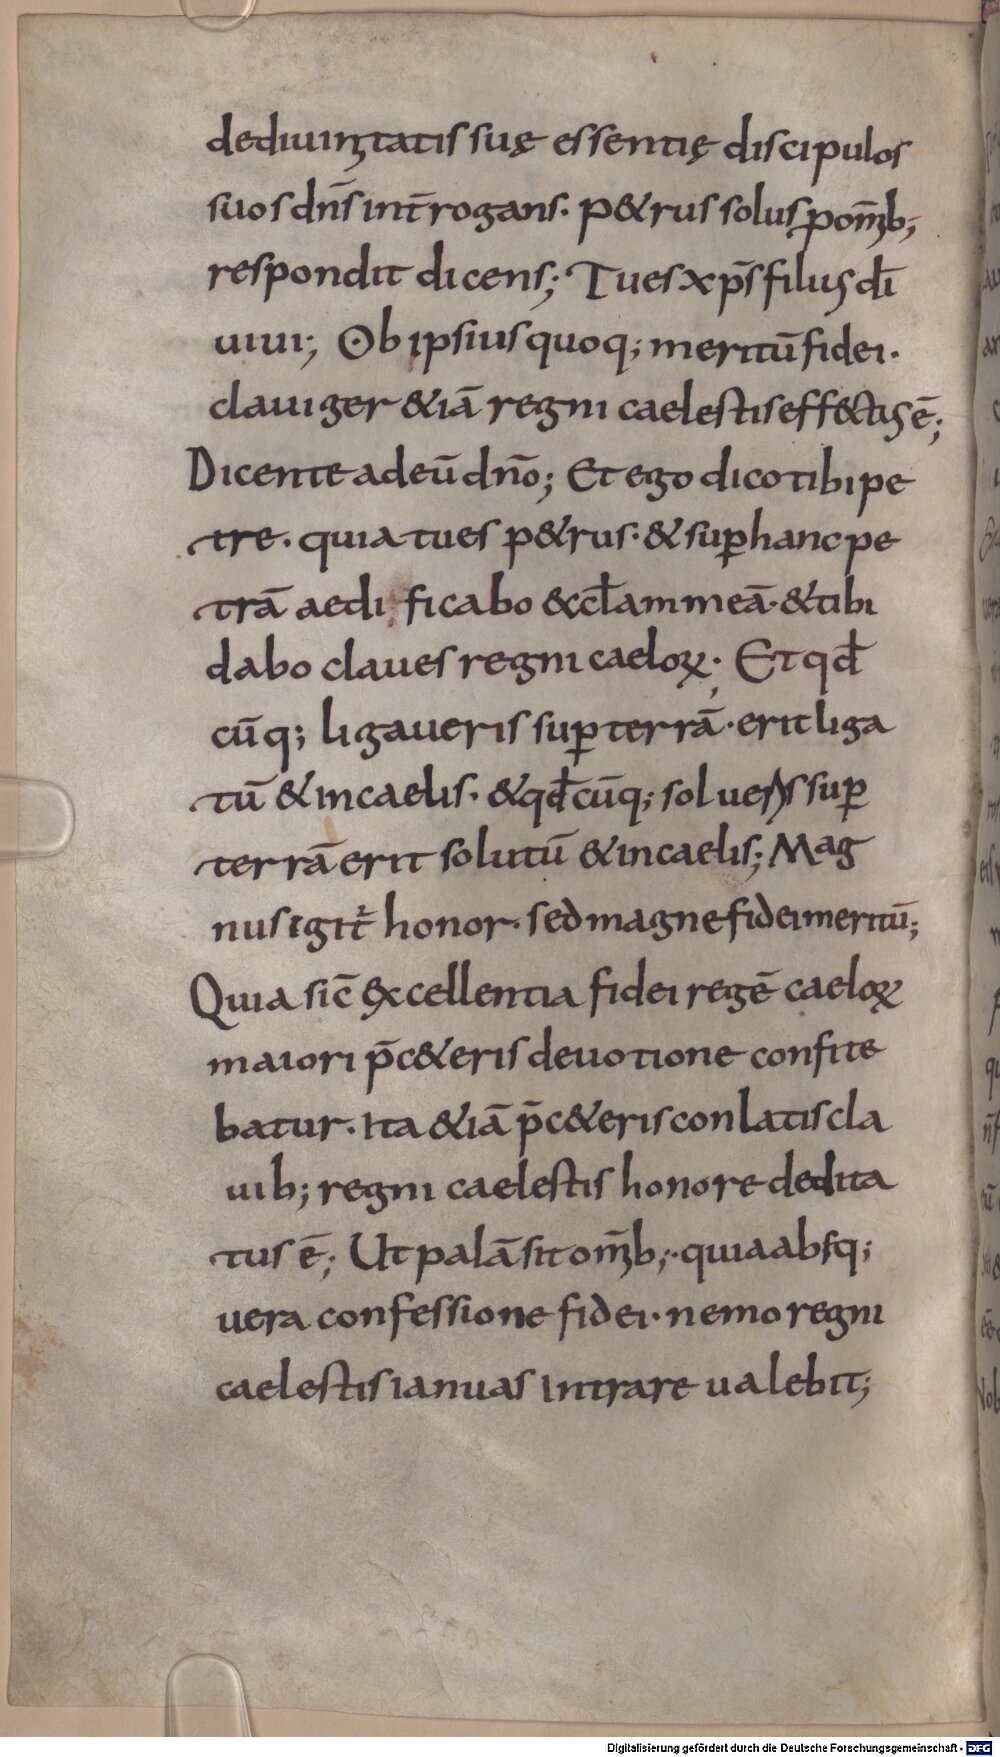 de diuinitatis suę essentię discipulos
suos dn̄s int̄rogans· p&rus solus p̱ om̄ib;
respondit dicens; Tu es xp̄s filius dī
uiui; Ob ipsius quoq; meritū fidei·
clauiger &iā regni caelestis effectus ē;
Dicente ad eū dn̄o; Et ego dico tibi pe
tre· quia tu es p&rus· & sup̱ hanc pe
trā aedificabo &cl̄am meā· & tibi
dabo claues regni caeloꝝ· Et qd̄
cūq; ligaueris sup̱ terrā· erit liga
tū & in caelis· & qd̄cūq; solueris sup̱
terrā erit solutū & in caelis; Mag
nus igit̄ honor· sed magne fidei meritū;
Quia sic̄ excellentia fidei regē caeloꝝ
maiori p̄c&eris deuotione confite
batur· Ita &iā p̄c&eris conlatis cla
uib; regni caelestis honore dedita
tus ē; Ut palā sit om̄ib;· quia absq;
uera confessione fidei· nemo regni
caelestis ianuas intrare ualebit;
Digitalisierung gefördert durch die Deutsche Forschungsgemeinschaft - DFG